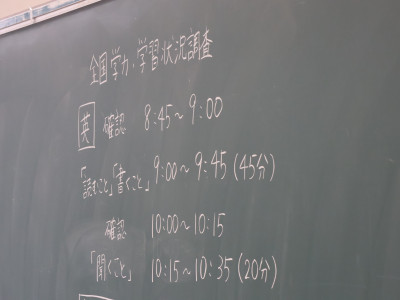 全国学力・学習状況調査
英 確認 8:45~9:00
「読むこと」「書くこと」 9:00~9:45(45分)
確認 10:00~10:15
「聞くこと」 10:15~10:35(20分)